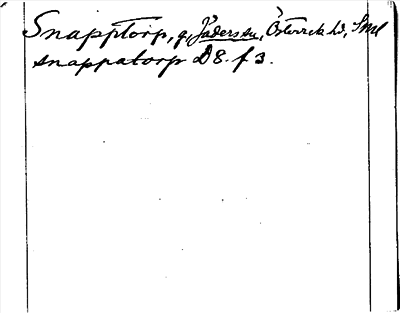 Snapptorp, g, Jäders sn, Österrek hd, Sml
snappatorp D8. f 3.